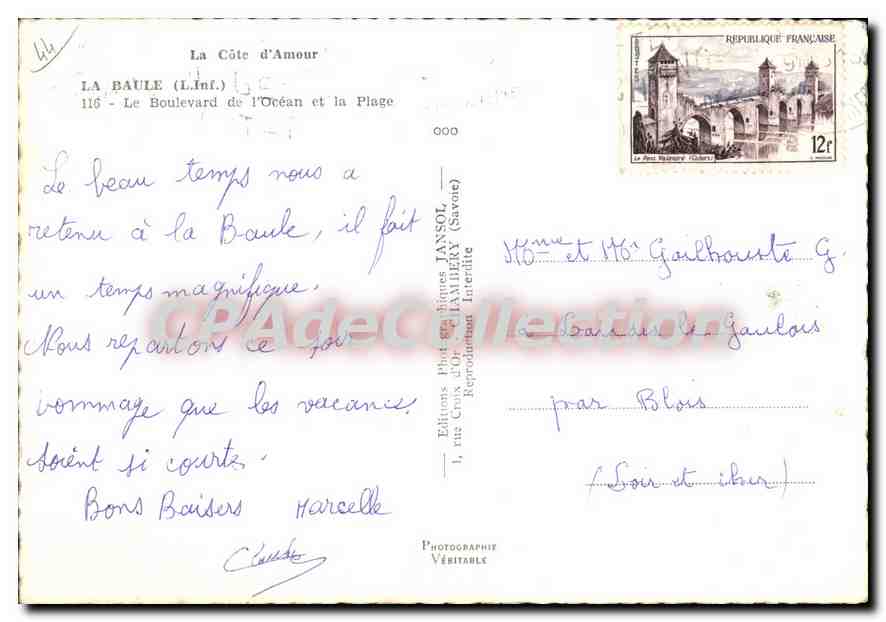 44
La Côte d'Amour
LA BAULE (L.Inf.)
116 - Le Boulevard de l'Océan et la Plage
Le beau temps nous a
retenu à la Baule, il fait
un temps magnifique.
Nous repartons ce soir
dommage que les vacances
soient si courtes.
Bons Baisers Marcelle
PHOTOGRAPHIE
VÉRITABLE
Editions Photographiques JANSOL
1, rue Croix d'Or - CHAMBÉRY (Savoie)
Reproduction Interdite
RÉPUBLIQUE FRANÇAISE
POSTES
Le Pont Valentré (Cahors)
12F
Mme et Mr Gailhouste G.
à Landes le Gaulois
par Blois
(Loir et cher)
CPAdeCollection